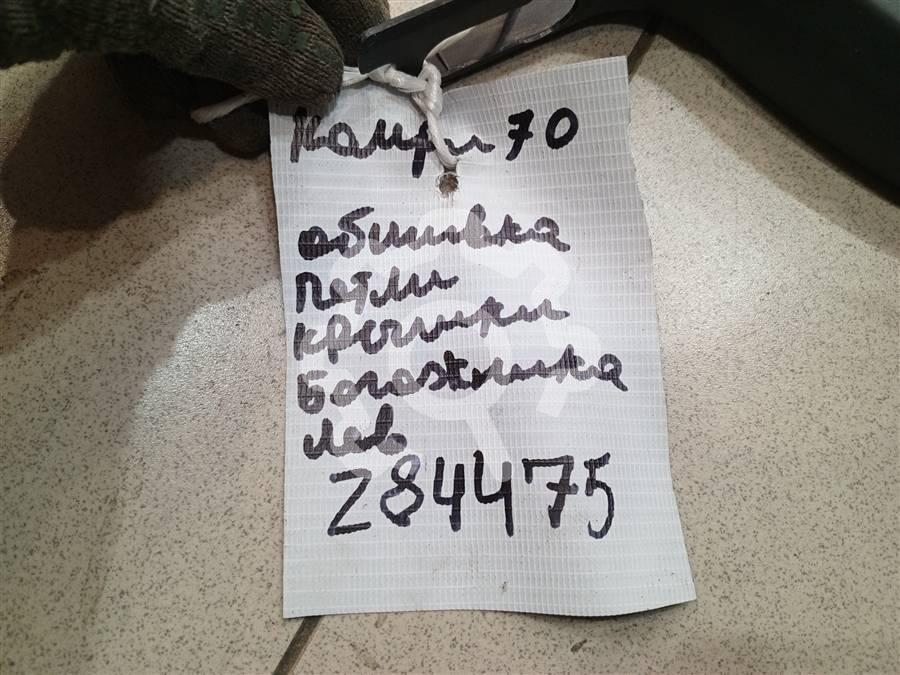 Камри 70
обшивка
петли
крышки
богажника
лев
Z84475